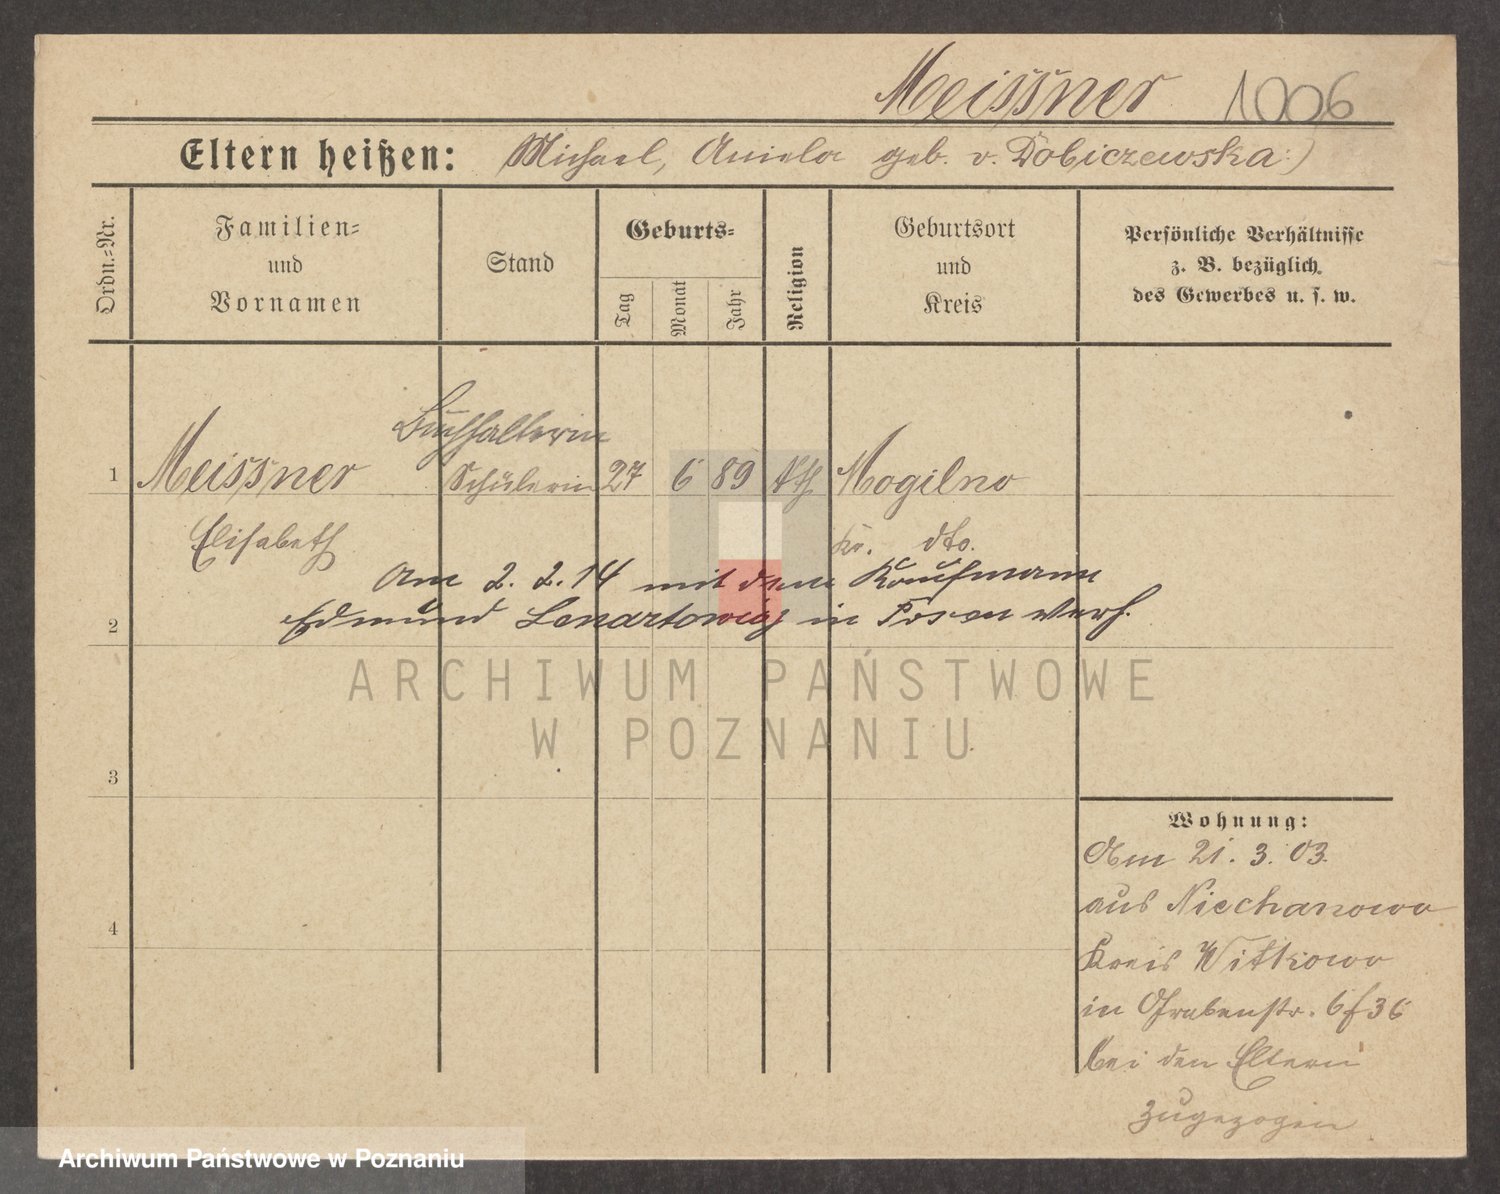 Meissner 1006
Eltern heißen: Michael, Aniela geb. v. Dobiczewska :)
Ordn.-Nr.
Familien-
und
Vornamen
Stand
Geburts-
Tag
Monat
Jahr
Religion
Geburtsort
und
Kreis
Persönliche Verhältnisse
z. B. bezüglich
des Gewerbes u. s. w.
Buchhalterin
1 Meissner Schülerin 27 6 89 kth Mogilno
Elisabeth Kr. dto.
Am 2. 2. 14 mit dem Kaufmann
2 Edmund Lenartowicz in Posen verh.
ARCHIWUM PAŃSTWOWE
W POZNANIU
3
Wohnung:
Am 21. 3. 03.
aus Niechanowo
4
Kreis Witkowo
in Grabenstr. 6 f 36
bei den Eltern
zugezogen
Archiwum Państwowe w Poznaniu